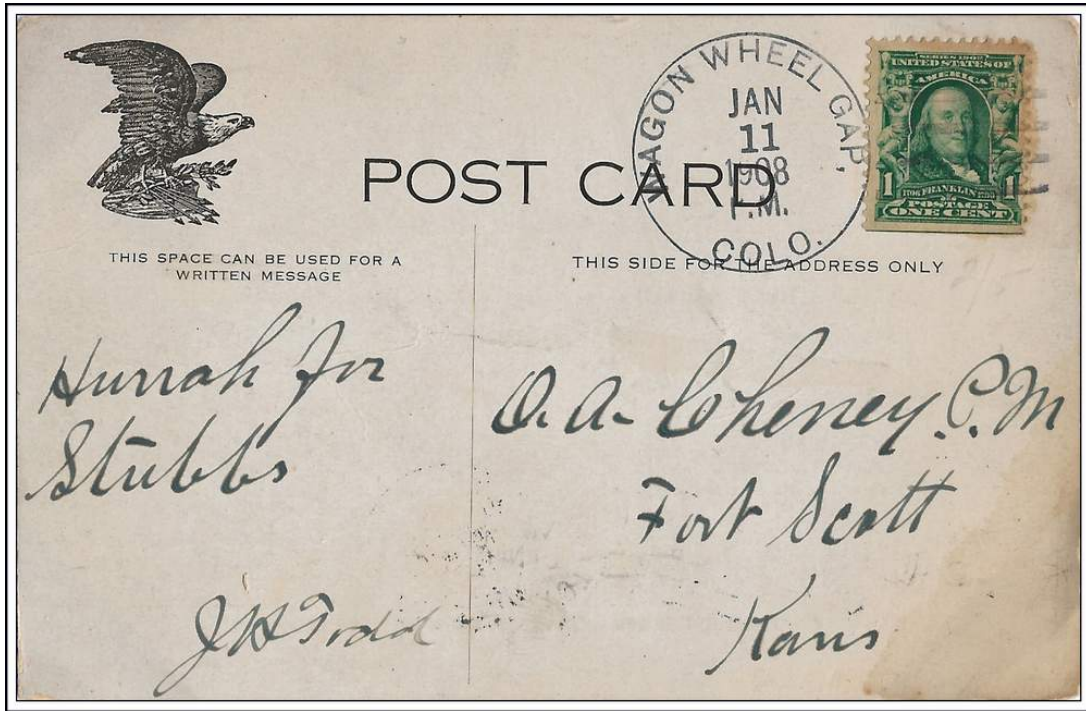 POST CARD
WAGON WHEEL GAP,
JAN
11
1908
P.M.
COLO.
SERIES 1902
UNITED STATES OF
AMERICA
1 1706 FRANKLIN 1790 1
POSTAGE
ONE CENT
THIS SPACE CAN BE USED FOR A
WRITTEN MESSAGE
THIS SIDE FOR THE ADDRESS ONLY
Hurrah for
Stubbs
J H Todd
O. A. Cheney. P. M
Fort Scott
Kans